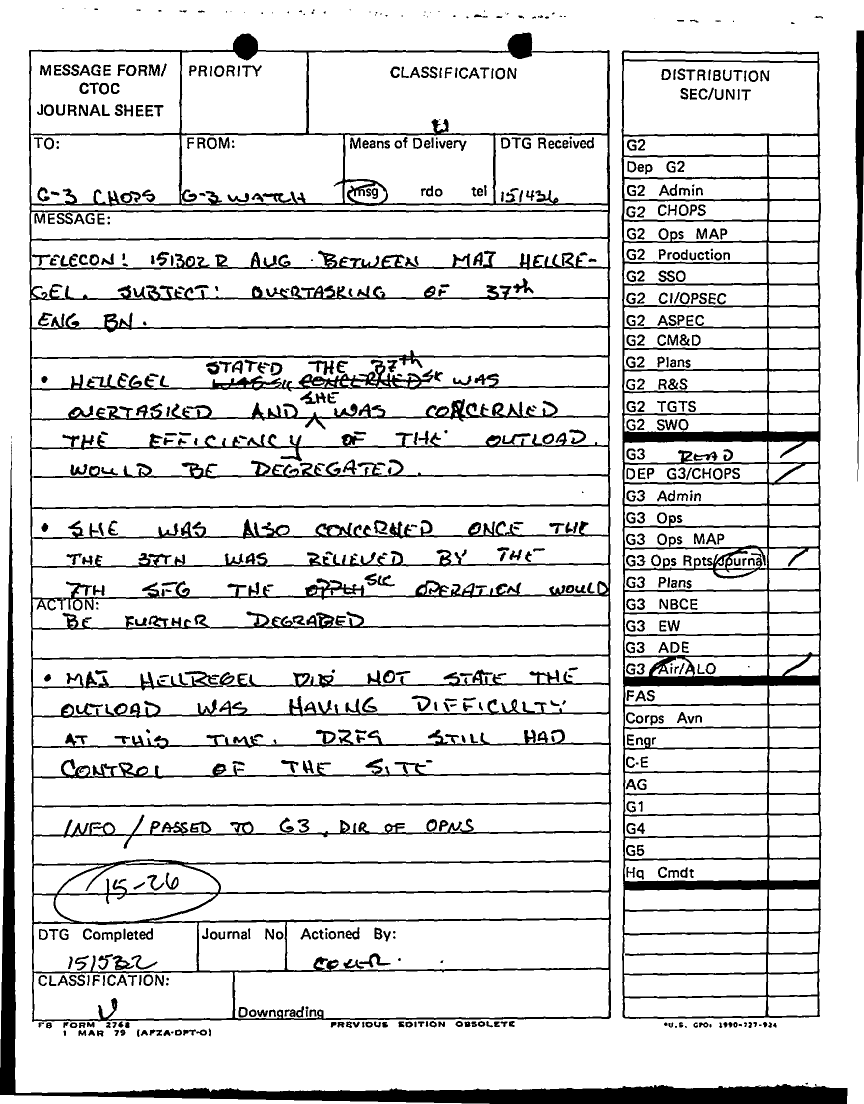 MESSAGE FORM/
CTOC
JOURNAL SHEET
PRIORITY
CLASSIFICATION
U
TO:
G-3 CHOPS
FROM:
G-3 WATCH
Means of Delivery
msg rdo tel
DTG Received
151436
MESSAGE:
TELECON: 151302 R AUG BETWEEN MAJ HELLRE-
GEL. SUBJECT: OVERTASKING OF 37th
ENG BN.
STATED THE 37th
• HELLEGEL WAS SK CONCERNED SK WAS
SHE
OVERTASKED AND ^ WAS CONCERNED
THE EFFICIENCY OF THE OUTLOAD
WOULD BE DEGREGATED.
• SHE WAS ALSO CONCERNED ONCE THE
THE 37TH WAS RELIEVED BY THE
7TH SFG THE SK OPERATION WOULD
ACTION:
BE FURTHER DEGRADED
• MAJ HELLREGEL DID NOT STATE THE
OUTLOAD WAS HAVING DIFFICULTY
AT THIS TIME. DRFS STILL HAD
CONTROL OF THE SITE
INFO / PASSED TO G3, DIR OF OPNS
15-26
DTG Completed
151522
Journal No
Actioned By:
CLASSIFICATION:
U
Downgrading
FB FORM 2768
1 MAR 79 (AFZA-DPT-O)
PREVIOUS EDITION OBSOLETE
DISTRIBUTION
SEC/UNIT
G2
Dep G2
G2 Admin
G2 CHOPS
G2 Ops MAP
G2 Production
G2 SSO
G2 CI/OPSEC
G2 ASPEC
G2 CM&D
G2 Plans
G2 R&S
G2 TGTS
G2 SWO
G3 READ
DEP G3/CHOPS
G3 Admin
G3 Ops
G3 Ops MAP
G3 Ops Rpts/Journal
G3 Plans
G3 NBCE
G3 EW
G3 ADE
G3 Air/ALO
FAS
Corps Avn
Engr
C-E
AG
G1
G4
G5
Hq Cmdt
*U.S. GPO: 1990-727-924